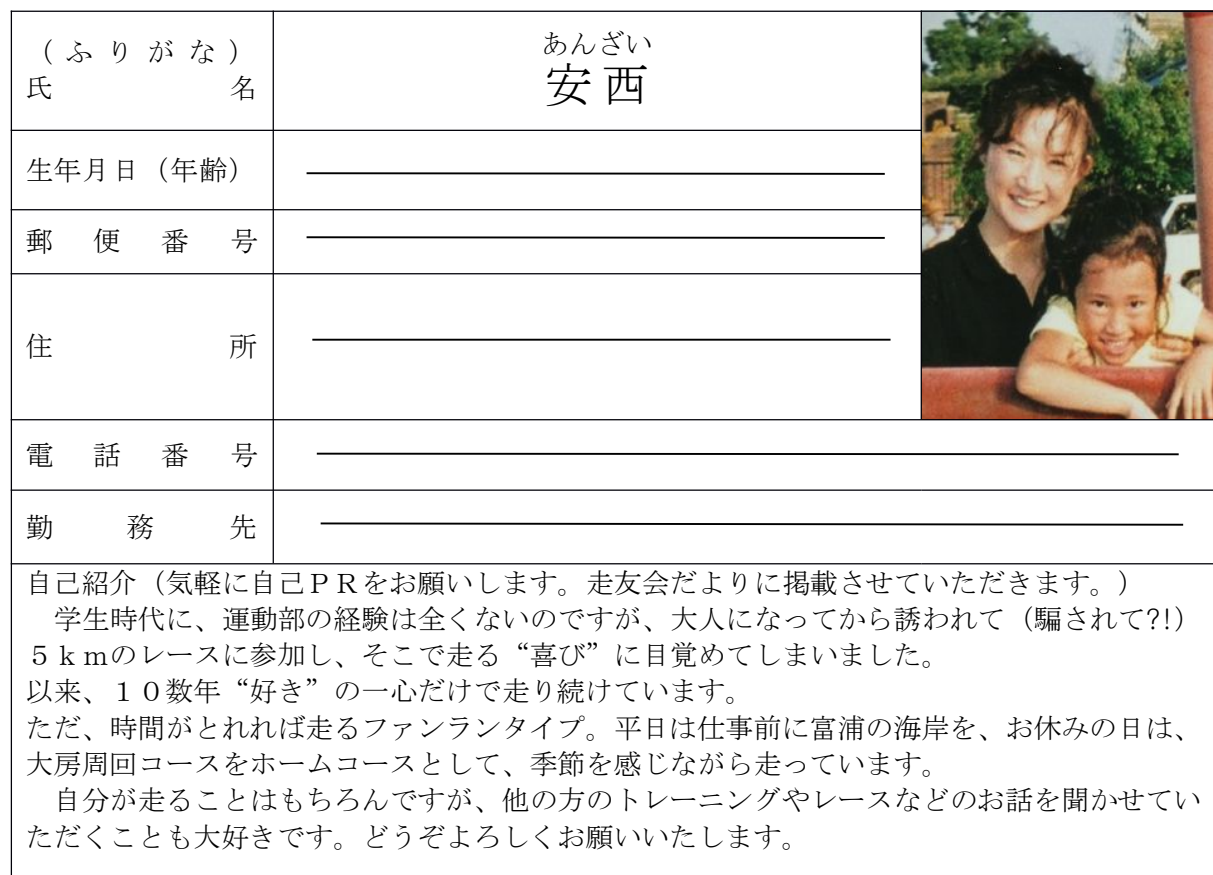 あんざい
(ふりがな)
氏名
安西
生年月日（年齢）
郵便番号
住所
電話番号
勤務先
自己紹介（気軽に自己ＰＲをお願いします。走友会だよりに掲載させていただきます。）
学生時代に、運動部の経験は全くないのですが、大人になってから誘われて（騙されて?!）
５ｋｍのレースに参加し、そこで走る“喜び”に目覚めてしまいました。
以来、１０数年“好き”の一心だけで走り続けています。
ただ、時間がとれれば走るファンランタイプ。平日は仕事前に富浦の海岸を、お休みの日は、
大房周回コースをホームコースとして、季節を感じながら走っています。
自分が走ることはもちろんですが、他の方のトレーニングやレースなどのお話を聞かせてい
ただくことも大好きです。どうぞよろしくお願いいたします。